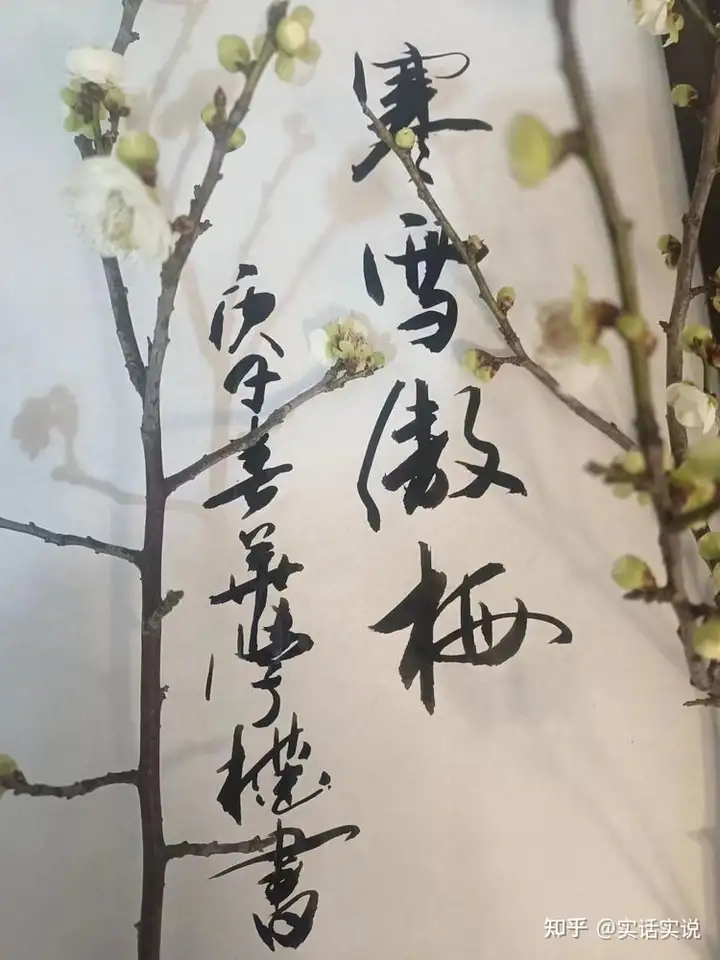 寒雪傲梅
庚子春華書
知乎 @实话实说